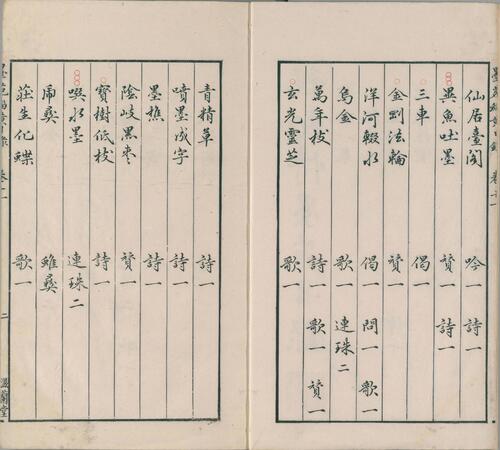 仙居臺閣 吟一 詩一
異魚吐墨 贊一 詩一
三車 偈一
金剛法輪 贊一
洋河輟水 偈一 問一 歌一
烏金 歌一 連珠二
萬年枝 詩一 歌一 贊一
玄光靈芝 歌一
青精草 詩一
噴墨成字 詩一
墨樵 詩一
陰岐黑棗 贊一
寶樹低枝 詩一
噀水墨 連珠二
虎彝 蜼彝
莊生化蝶 歌一
二